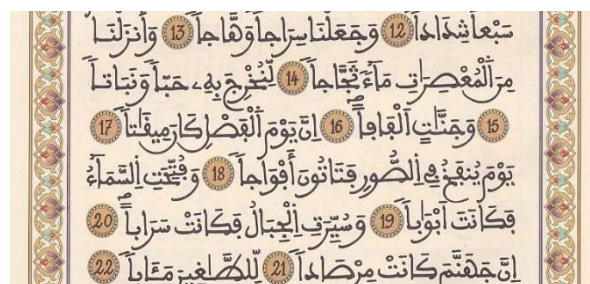 سَبْعاٗ شِدَاداٗ 12 وَجَعَلْنَا سِرَاجاٗ وَهَّاجاٗ 13 وَأَنزَلْنَا
مِنَ اَ۬لْمُعْصِرَٰتِ مَآءٗ ثَجَّاجاٗ 14 لِّنُخْرِجَ بِهِۦ حَبّاٗ وَنَبَاتاٗ
15 وَجَنَّٰتٍ اَلْفَافاًۖ 16 اِنَّ يَوْمَ اَ۬لْفَصْلِ كَانَ مِيقَٰتاٗ 17
يَوْمَ يُنفَخُ فِے اِ۬لصُّورِ فَتَاتُونَ أَفْوَاجاٗ 18 وَفُتِّحَتِ اِ۬لسَّمَآءُ
فَكَانَتَ اَبْوَٰباٗ 19 وَسُيِّرَتِ اِ۬لْجِبَالُ فَكَانَتْ سَرَاباًۖ 20
اِنَّ جَهَنَّمَ كَانَتْ مِرْصَاداٗ 21 لِّلطَّٰغِينَ مَـَٔاباٗ 22